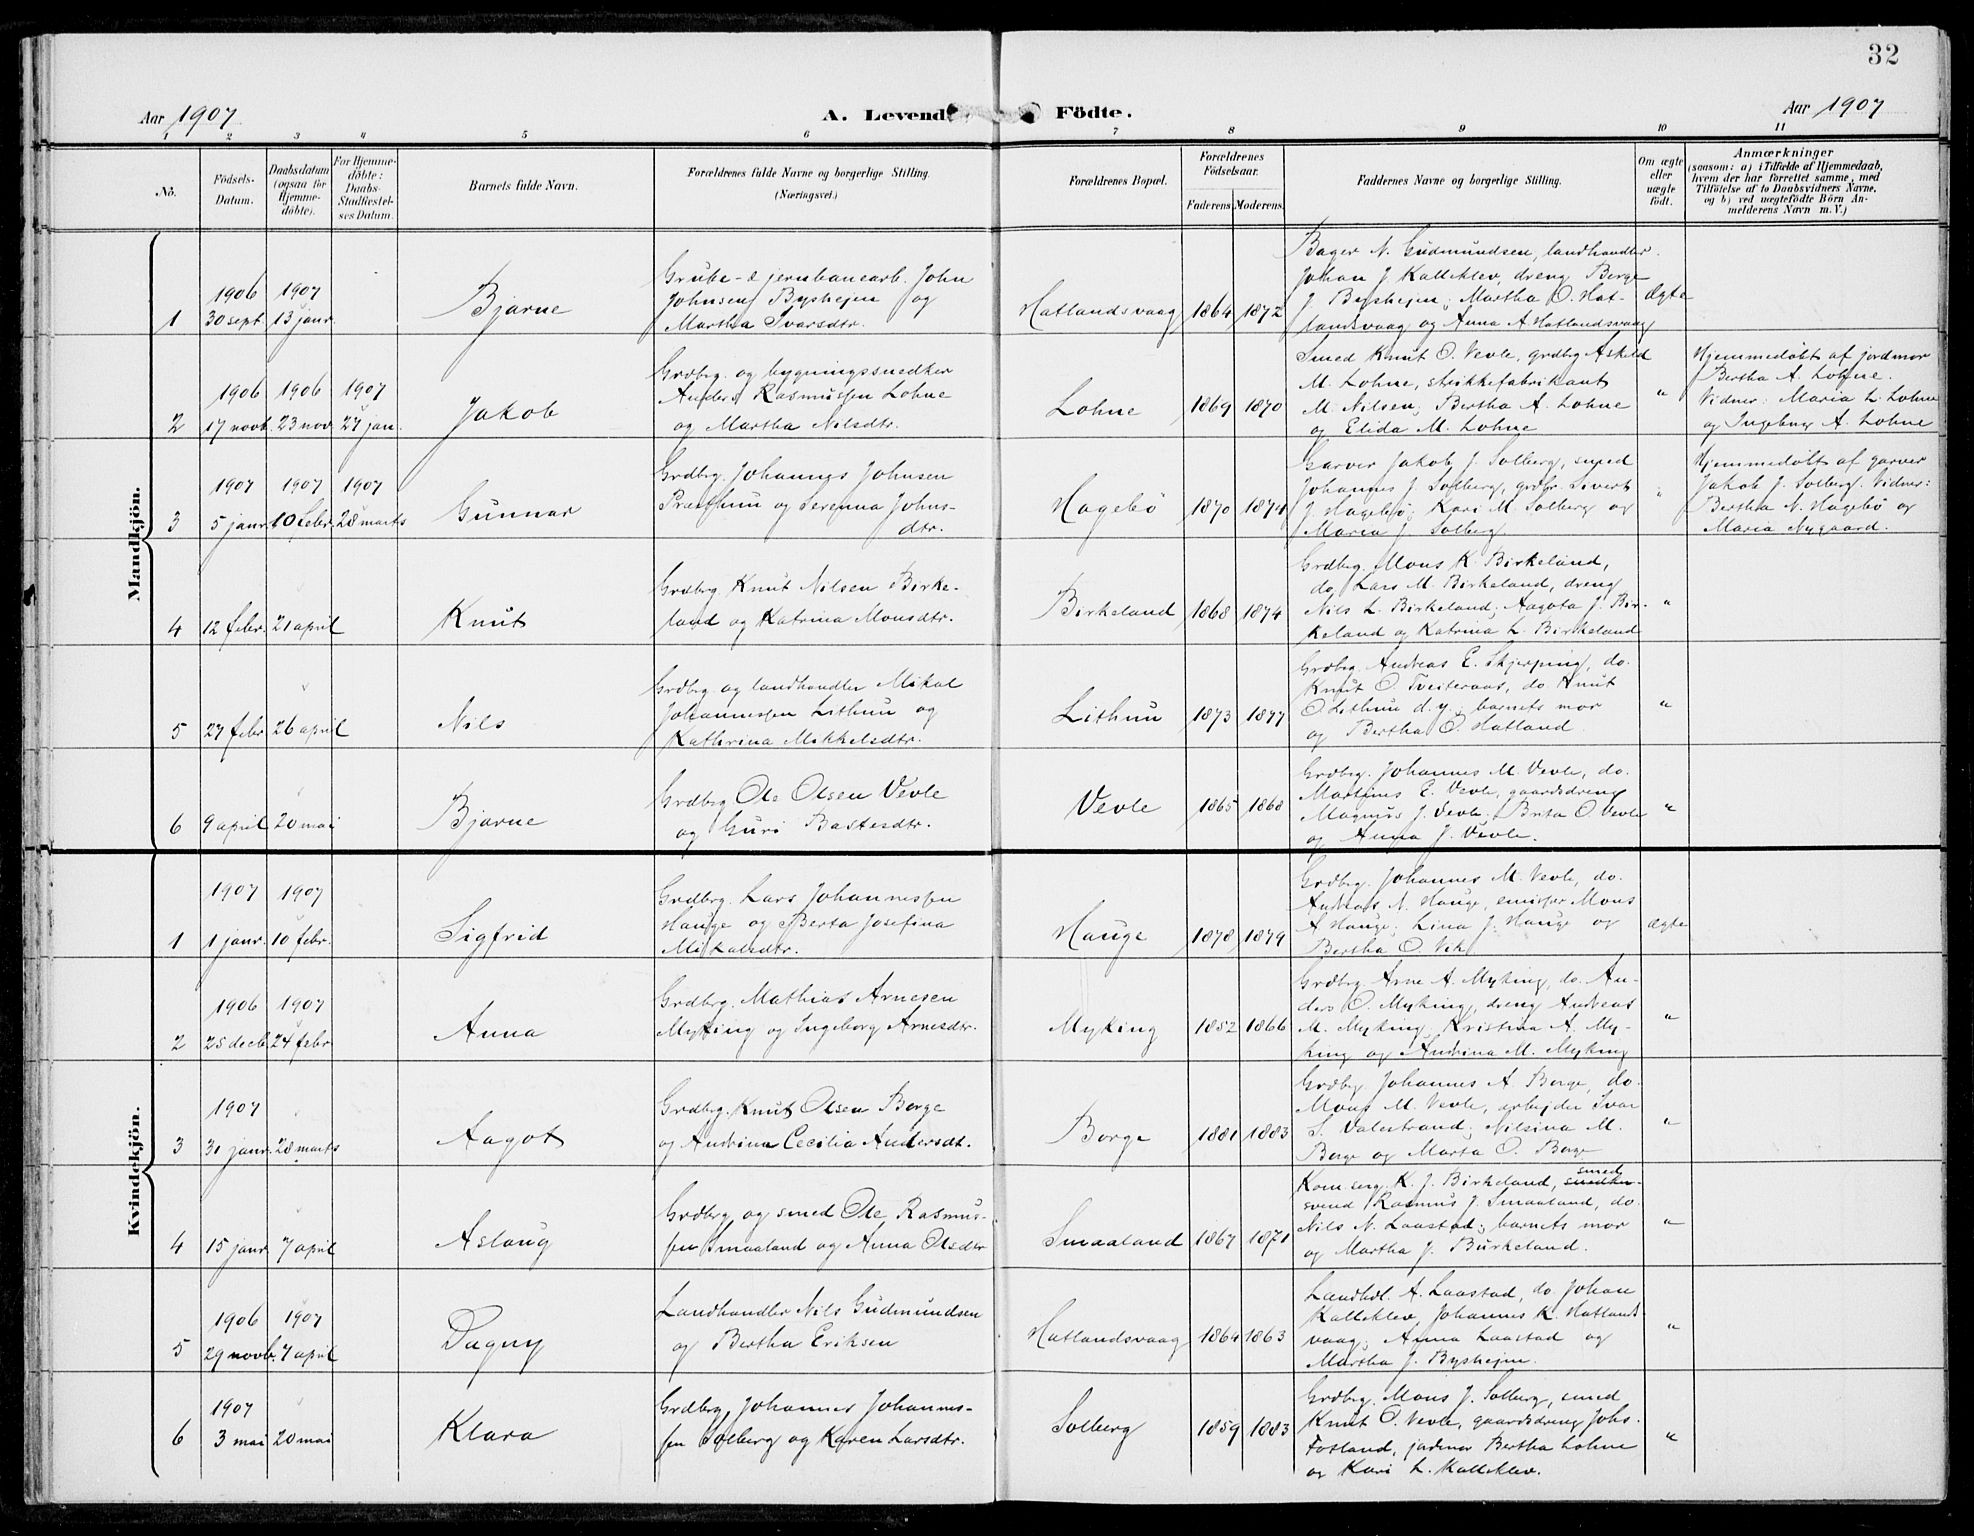 32
Aar 1907
A. Levend Födte.
Aar 1907
1 2 3 4 5 6 7 8 9 10 11
No.
Födsels-Datum.
Daabsdatum (ogsaa for Hjemme-döbte).
For Hjemme-döbte: Daabs-Stadfæstel-ses Datum.
Barnets fulde Navn.
Forældrenes fulde Navne og borgerlige Stilling. (Næringsvei.)
Forældrenes Bopæl.
Forældrenes Födselsaar.
Faderens. Moderens.
Faddernes Navne og borgerlige Stilling.
Om ægte eller uægte födt.
Anmærkninger
(saasom: a) i Tilfælde af Hjemmedaab,
hvem der har forrettet samme, med
Tilföielse af to Daabsvidners Navne,
og b) ved uægtefödte Börn An-
melderens Navn m. V.)
Mandkjön.
1
1906 30 sept.
1907 13 janr.
Bjarne
Grube- & jernbanearb. John
Johnsen Byshejen og
Martha Ivarsdtr.
Hatlandsvaag
1864
1872
Bager N. Gudmundsen, landhandler
Johan J. Kalleklev, dreng Berge
J. Byshejen; Martha O. Hat-
landsvaag og Anna A. Hatlandsvaag
Ægte
2
1906 17 novb.
1906 23 nov.
1907 27 jan.
Jakob
Grdbrg. og bygningssnedker
Anders Rasmussen Lohne
og Martha Nilsdtr.
Lohne
1869
1870
Smed Knut O. Vevle, grdbrg Askild
M. Lohne, strikkefabrikant
M. Nilsen; Bertha A. Lohne
og Elida M. Lohne
"
Hjemmedøbt af jordmor
Bertha A. Lohne.
Vidner: Maria L. Lohne
og Ingeborg A. Lohne
3
1907 5 janr.
1907 10 febr.
1907 28 marts
Gunnar
Grdbrg. Johannes Johnsen
Præsthun og Serenna Johns-
dtr.
Hagebø
1870
1874
Garver Jakob J. Solberg, smed
Johannes J. Solberg, grdbr. Sivert
J. Hagebø; Kari M. Solberg og
Maria J. Solberg
"
Hjemmedøbt af garver
Jakob J. Solberg. Vidner:
Bertha N. Hagebø og
Maria Nygaard.
4
12 febr.
21 april
Knut
Grdbrg Knut Nilsen Birke-
land og Katrina Monsdtr.
Birkeland
1868
1874
Grdbrg. Mons K. Birkeland,
do. Lars M. Birkeland, dreng
Nils L. Birkeland; Aagota J. Bir-
keland og Katrina L. Birkeland
"
5
27 febr.
26 april
Nils
Grdbrg. og landhandler Mikal
Johannessen Lithun og
Kathrina Mikkelsdtr.
Lithun
1873
1877
Grdbrg. Andreas E. Skjerping, do.
Knut O. Tveiteraas, do. Knut
O. Lithun d.y.; barnets mor
og Bertha O. Hatland.
"
6
9 april
20 mai
Bjarne
Grdbrg Ole Olsen Vevle
og Guri Bastesdtr.
Vevle
1865
1868
Grdbrg. Johannes M. Vevle, do.
Martines E. Vevle, gaardsdreng
Magnus J. Vevle; Brita O. Vevle
og Anna J. Vevle.
"
Kvindekjön.
1
1907 1 janr.
1907 10 febr.
Sigfrid
Grdbrg. Lars Johannessen
Hauge og Berta Josefina
Mikalsdtr.
Hauge
1878
1879
Grdbrg. Johannes M. Vevle, do.
Andreas N. Hauge, emissær Mons
A Hauge; Lina J. Hauge og
Bertha O. Vik
ægte
2
1906 25 decb.
1907 24 febr.
Anna
Grdbrg. Mathias Arnesen
Myking og Ingeborg Arnesdtr.
Myking
1852
1866
Grdbrg Arne A. Myking, do. An-
ders O. Myking, dreng Andreas
M. Myking, Kristina A. My-
king og Andrina M. Myking
"
3
1907 31 janr.
28 marts
Aagot
Grdbrg. Knut Olsen Borge
og Andrina Cecilia Andersdt.
Borge
1881
1883
Grdbrg. Johannes A. Borge, do.
Mons M. Vevle, arbejder Ivar
S. Valestrand; Nilsina M.
Borge og Marta O. Borge
"
4
15 janr.
7 april
Aslaug
Grdbrg og smed Ole Rasmus-
sen Smaaland og Anna Olsdtr
Smaaland
1867
1871
K. J. Birkeland, smed
svend Rasmus J. Smaaland, do.
Nils N. Laastad; barnets mor
og Martha J. Birkeland.
"
5
1906 29 novb.
1907 7 april
Dagny
Landhandler Nils Gudmundsen
og Bertha Eriksen
Hatlandsvaag
1864
1863
Landhdl. A. Laastad, do. Johan
Kalleklev, Johannes K. Hatlands-
vaag; Anna Laastad og
Martha J. Byshejen.
"
6
1907 3 mai
20 mai
Klara
Grdbrg. Johannes Johannes-
sen Solberg og Karen Larsdtr.
Solberg
1859
1883
Grdbrg. Mons J. Solberg, smed
Knut O. Vevle, gaardsdreng Johs.
Fosland, jordmor Bertha Lohne
og Kari L. Kalleklev.
"